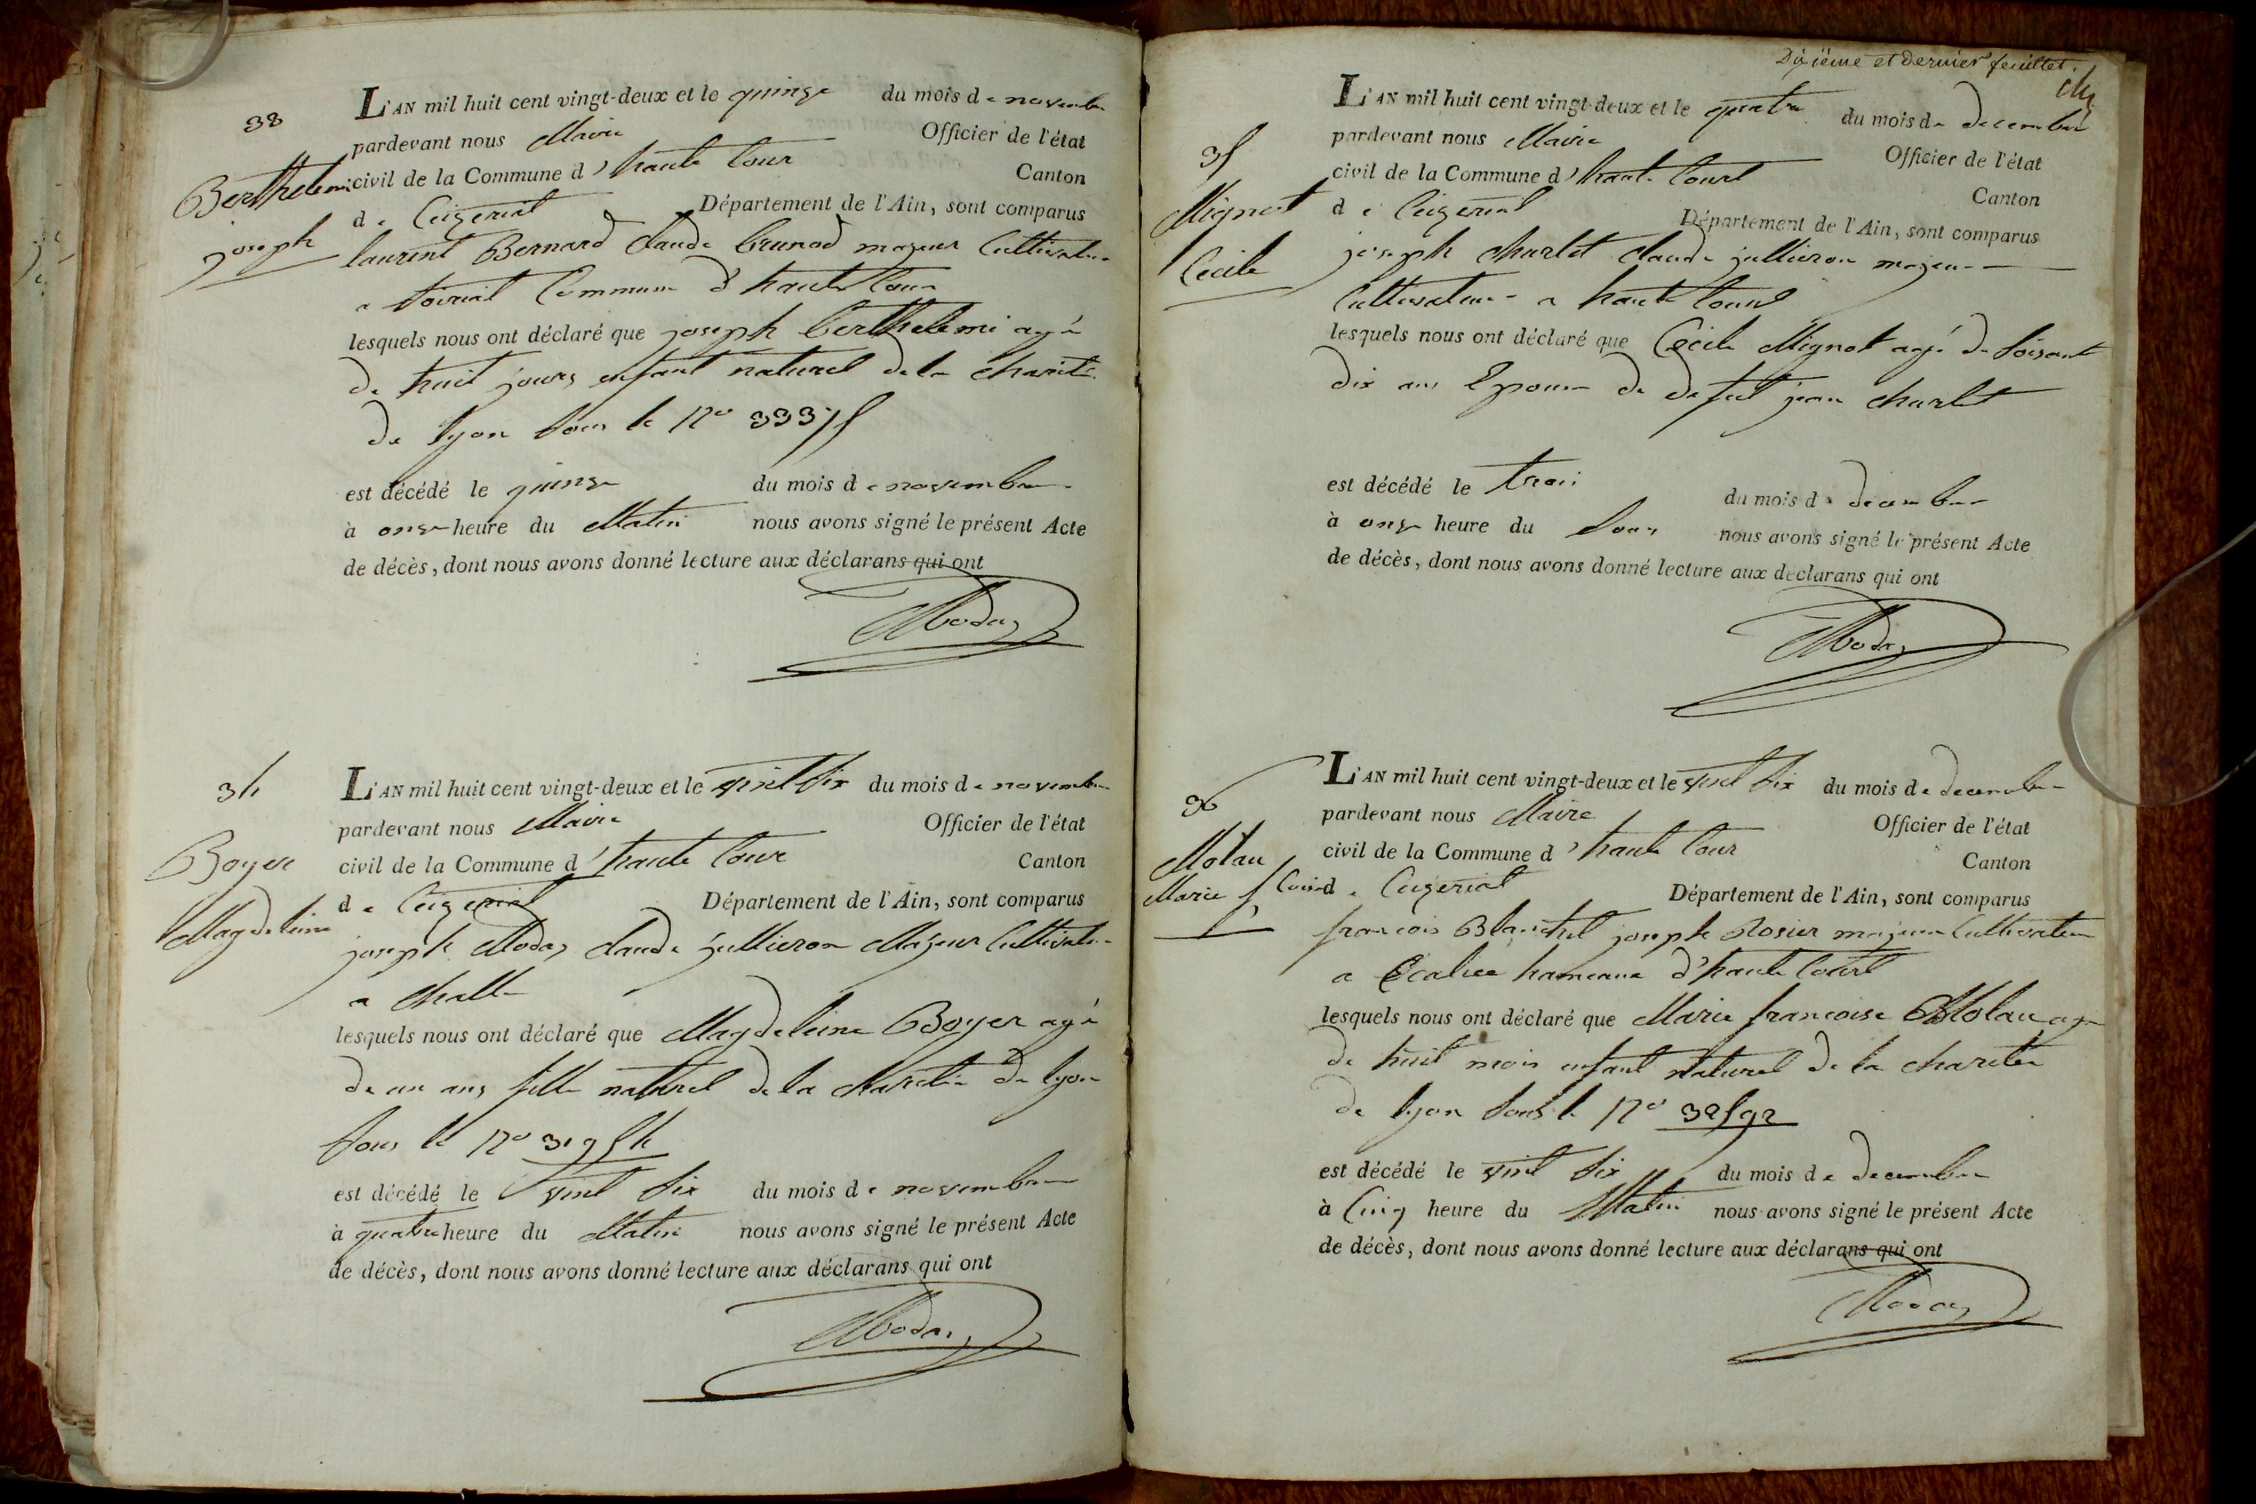 33
Berthelemi
joseph
L'AN mil huit cent vingt-deux et le quinze du mois de novembre
pardevant nous Maire Officier de l'état
civil de la Commune d'haute Cour Canton
de Ceizeriat Département de l'Ain, sont comparus
laurent Bernard Claude brunod majeur Cultivateur
a Commune d'haute Cour
lesquels nous ont déclaré que joseph berthelemi agé
de huit jours enfant naturel de la charité
de lyon sous le No 33375
est décédé le quinze du mois de novembre
à onze heure du Matin nous avons signé le présent Acte
de décès, dont nous avons donné lecture aux déclarans qui ont
Modas
34
Boyer
Magdeleine
L'AN mil huit cent vingt-deux et le vint six du mois de novembre
pardevant nous Maire Officier de l'état
civil de la Commune d'haute Cour Canton
de Ceizeriat Département de l'Ain, sont comparus
joseph Modas Claude jullieron Majeur Cultivateur
a Challe
lesquels nous ont déclaré que Magdeleine Boyer agé
de un ans fille naturel de la charitée de lyon
sous le No 31954
est décédé le vint six du mois de novembre
à quatre heure du Matin nous avons signé le présent Acte
de décès, dont nous avons donné lecture aux déclarans qui ont
Modas
Dixième et dernier feuillet.
35
Mignot
Cecile
L'AN mil huit cent vingt-deux et le quatre du mois de decembre
pardevant nous Maire Officier de l'état
civil de la Commune d'haute Court Canton
de Ceizeriat Département de l'Ain, sont comparus
joseph charlet Claude jullieron majeur
Cultivateur a haute Court
lesquels nous ont déclaré que Cecile Mignot agé de soisante
dix ans Epouse de defut jean charlet
est décédé le trois du mois de decembre
à onze heure du soir nous avons signé le présent Acte
de décès, dont nous avons donné lecture aux déclarans qui ont
Modas
36
Molau
Marie f
L'AN mil huit cent vingt-deux et le vint six du mois de decembre
pardevant nous Maire Officier de l'état
civil de la Commune d'haute Cour Canton
de Ceizeriat Département de l'Ain, sont comparus
francois Blanchet joseph Rosier majeur Cultivateur
a hameaux d'haute Court
lesquels nous ont déclaré que Marie francoise Molau age
de huit mois enfant naturel de la charitée
de lyon sous le No 32592
est décédé le vint six du mois de decembre
à Cinq heure du Matin nous avons signé le présent Acte
de décès, dont nous avons donné lecture aux déclarans qui ont
Modas